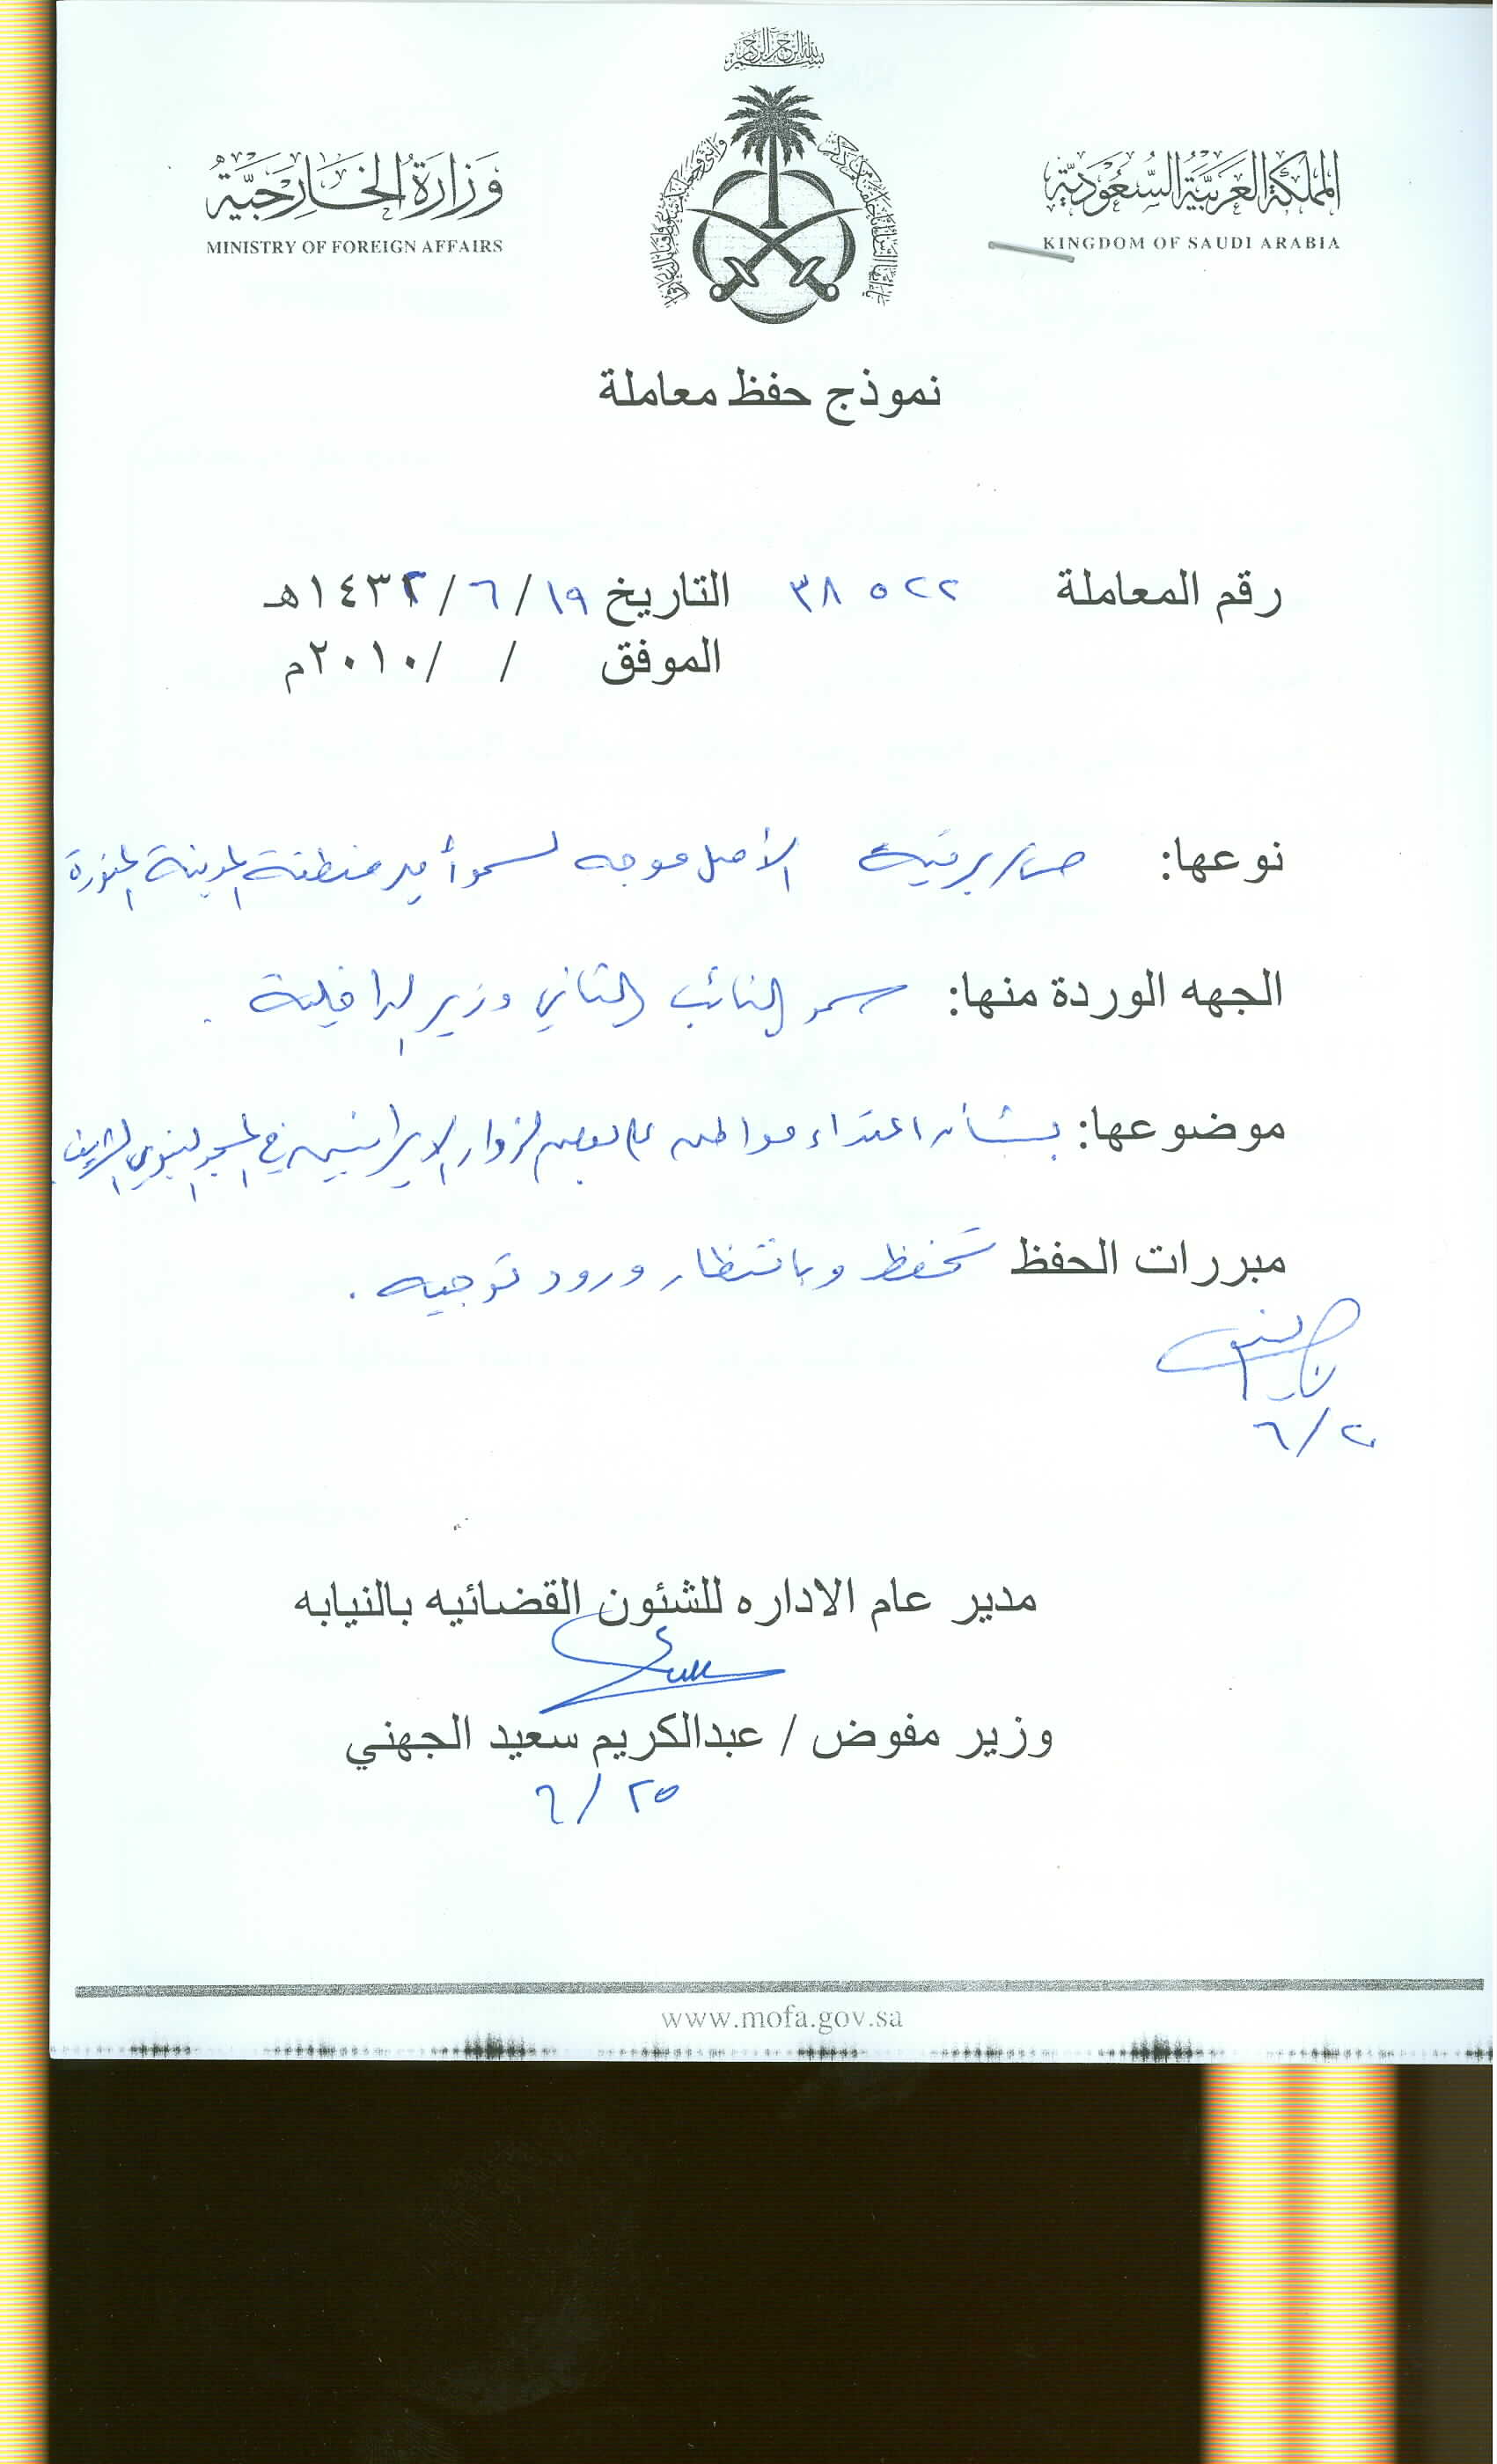 بسم الله الرحمن الرحيم
المملكة العربية السعودية
KINGDOM OF SAUDI ARABIA
وزارة الخارجية
MINISTRY OF FOREIGN AFFAIRS
نموذج حفظ معاملة
رقم المعاملة ٣٨٥٢٢ التاريخ ١٩/٦/١٤٣٢هـ
الموفق / /٢٠١٠م
نوعها: برقية الأصل موجه لسمو أمير منطقة المدينة المنورة
الجهه الوردة منها: سمو النائب الثاني وزير الداخلية .
موضوعها: بشأن اعتداء مواطن على بعض الزوار الايرانيين في المسجد النبوي الشريف .
مبررات الحفظ تحفظ وبانتظار ورود توجيه .
مدير عام الاداره للشئون القضائيه بالنيابه
وزير مفوض / عبدالكريم سعيد الجهني
٢٥/٦
www.mofa.gov.sa